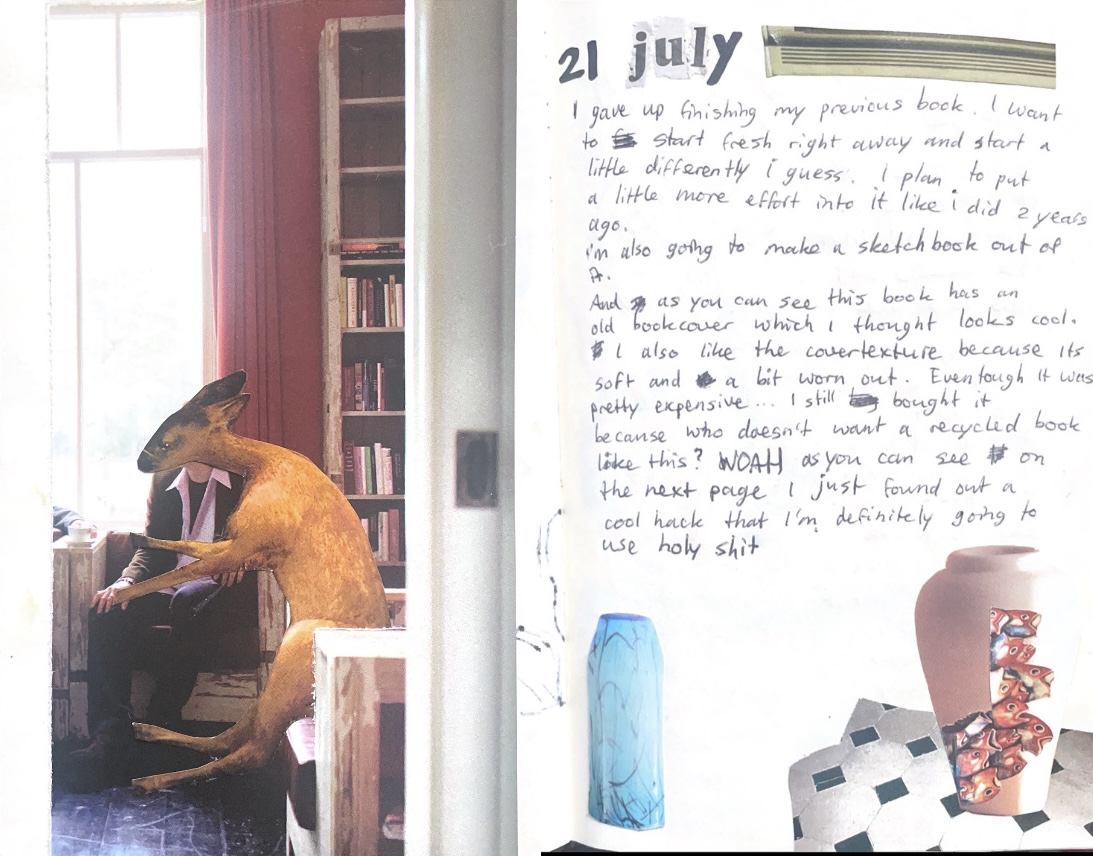 21 july
I gave up finishing my previous book. I want
to start fresh right away and start a
little differently i guess. I plan to put
a little more effort into it like i did 2 years
ago.
i'm also going to make a sketchbook out of
it.
And as you can see this book has an
old bookcover which I thought looks cool.
I also like the covertexture because its
soft and a bit worn out. Eventough It was
pretty expensive... I still bought it
because who doesn't want a recycled book
like this? WOAH as you can see on
the next page I just found out a
cool hack that I'm definitely going to
use holy shit